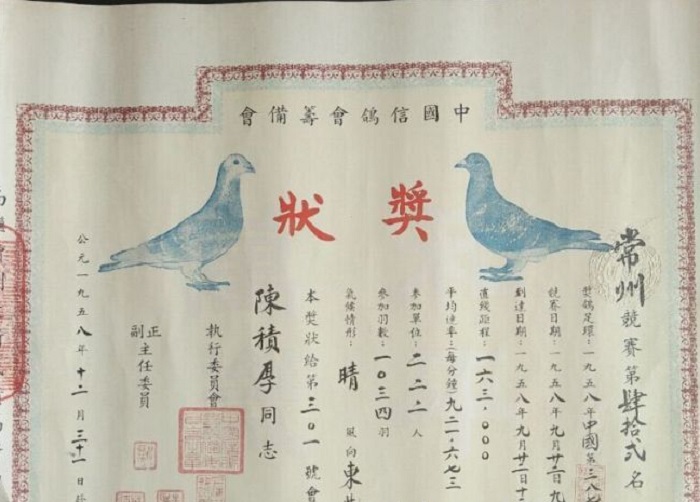 中國信鴿會籌備會
獎狀
常州競賽第肆拾貳名
獎鴿足環：一九五八年中國第三八七
競賽日期：一九五八年九月廿二日九
到達日期：一九五八年九月廿二日十
直綫距程：一六三.000
平均速率：（每分鐘）九二一.六七三
參加單位：二二二人
參加羽數：一〇三四羽
氣候情形：晴 風向東
本獎狀給第三〇一號會
陳積厚同志
執行委員會
正副主任委員
公元一九五八年十二月三十一日